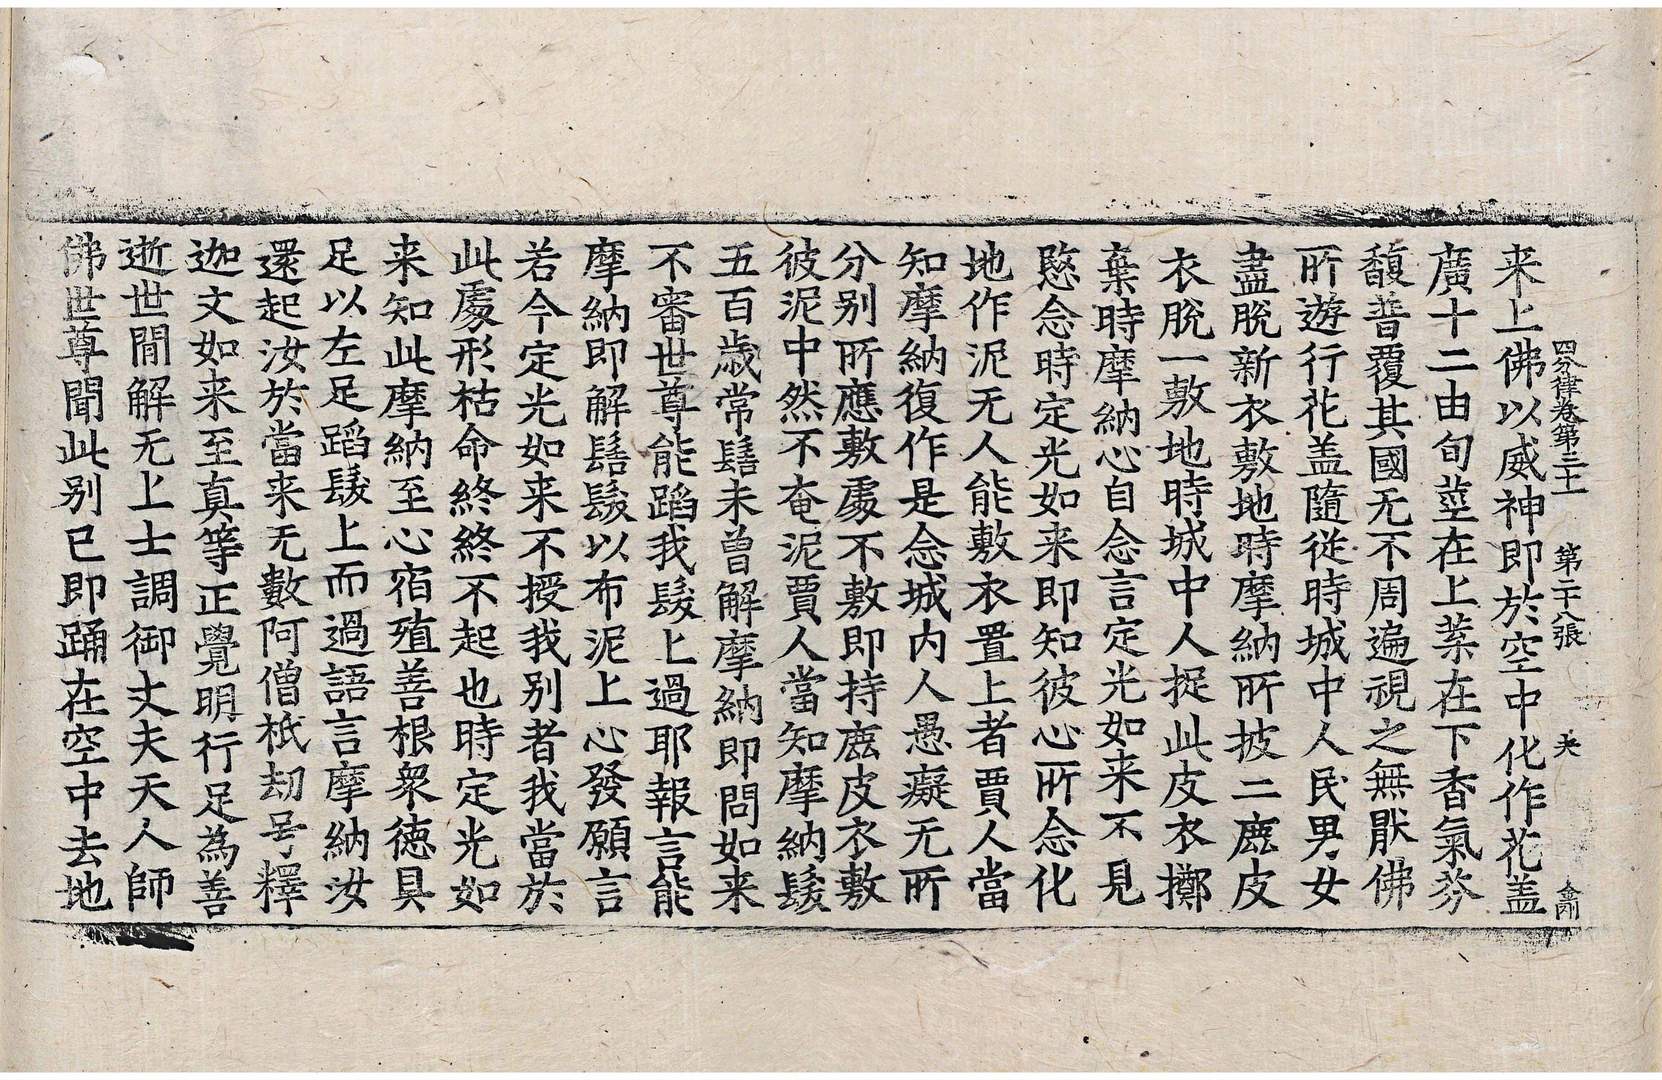 四分律卷第三十一 第二十八張 夾 金剛
来上佛以威神即於空中化作花盖
廣十二由旬莖在上葉在下香氣芬
馥普覆其國无不周遍視之無猒佛
所遊行花盖隨從時城中人民男女
盡脫新衣敷地時摩納所披二鹿皮
衣脫一敷地時城中人捉此皮衣擲
棄時摩納心自念言定光如来不見
愍念時定光如来即知彼心所念化
地作泥无人能敷衣置上者賈人當
知摩納復作是念城内人愚癡无所
分别所應敷處不敷即持鹿皮衣敷
彼泥中然不奄泥賈人當知摩納髮
五百歲常髻未曾解摩納即問如来
不審世尊能蹈我髮上過耶報言能
摩納即解髻髮以布泥上心發願言
若今定光如来不授我别者我當於
此處形枯命終終不起也時定光如
来知此摩納至心宿殖善根衆德具
足以左足蹈髮上而過語言摩納汝
還起汝於當来无數阿僧祇劫号釋
迦文如来至真等正覺明行足為善
逝世間解无上士調御丈夫天人師
佛世尊聞此别已即踊在空中去地